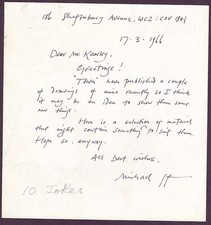 186 Shaftesbury Avenue, WC2: COV 1841
17-3-1966
Dear Mr. Kearley,
Greetings!
"Town" have published a couple
of drawings of mine recently so I think
it may be an idea to show them some
new things.
Here is a selection of material
that might contain something to suit them
Hope so, anyway.
All best wishes,
Michael
10 Jokes